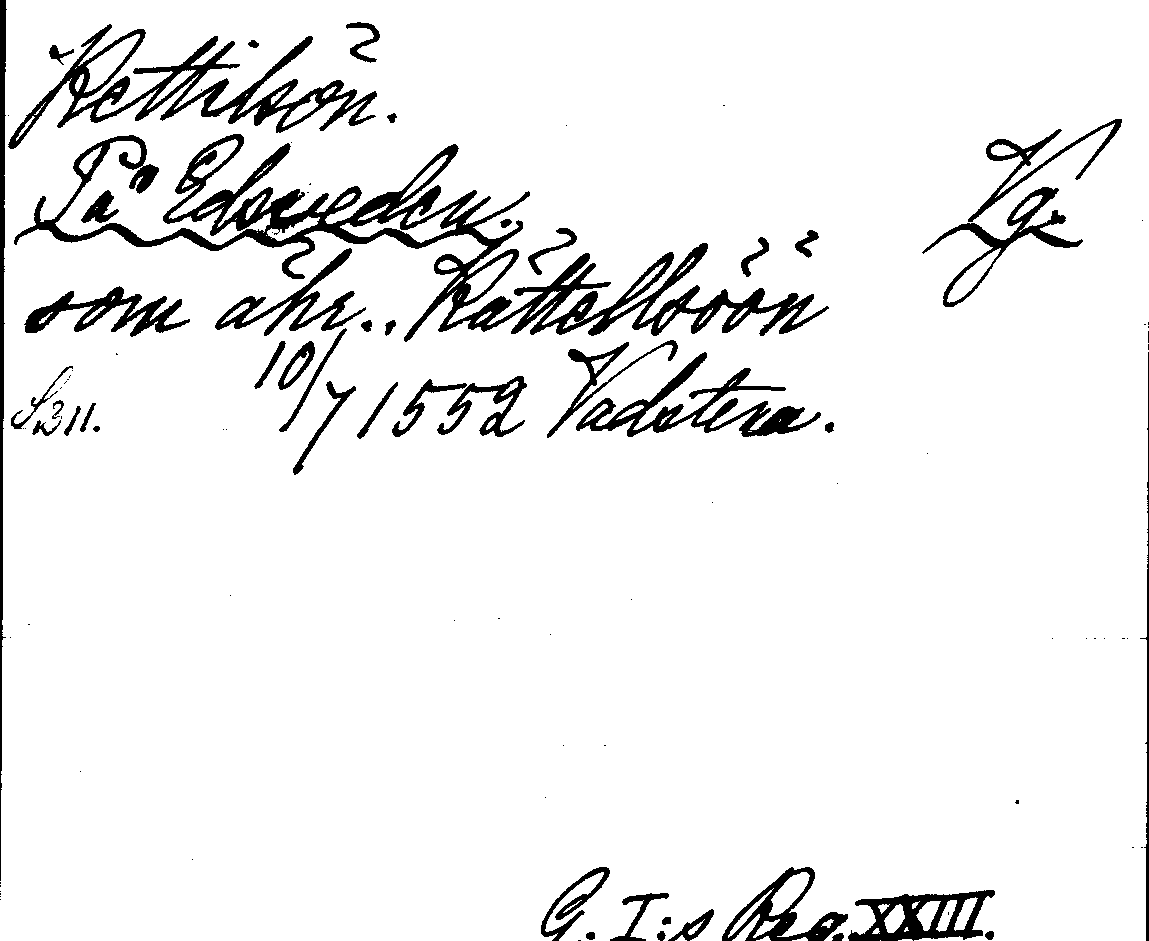 Kettilsön.
På Edsveden. Vg.
som ähr.. Kättellsöön
S. 311. 10/7 1552 Vadstena.
G. I:s Reg. XXIII.